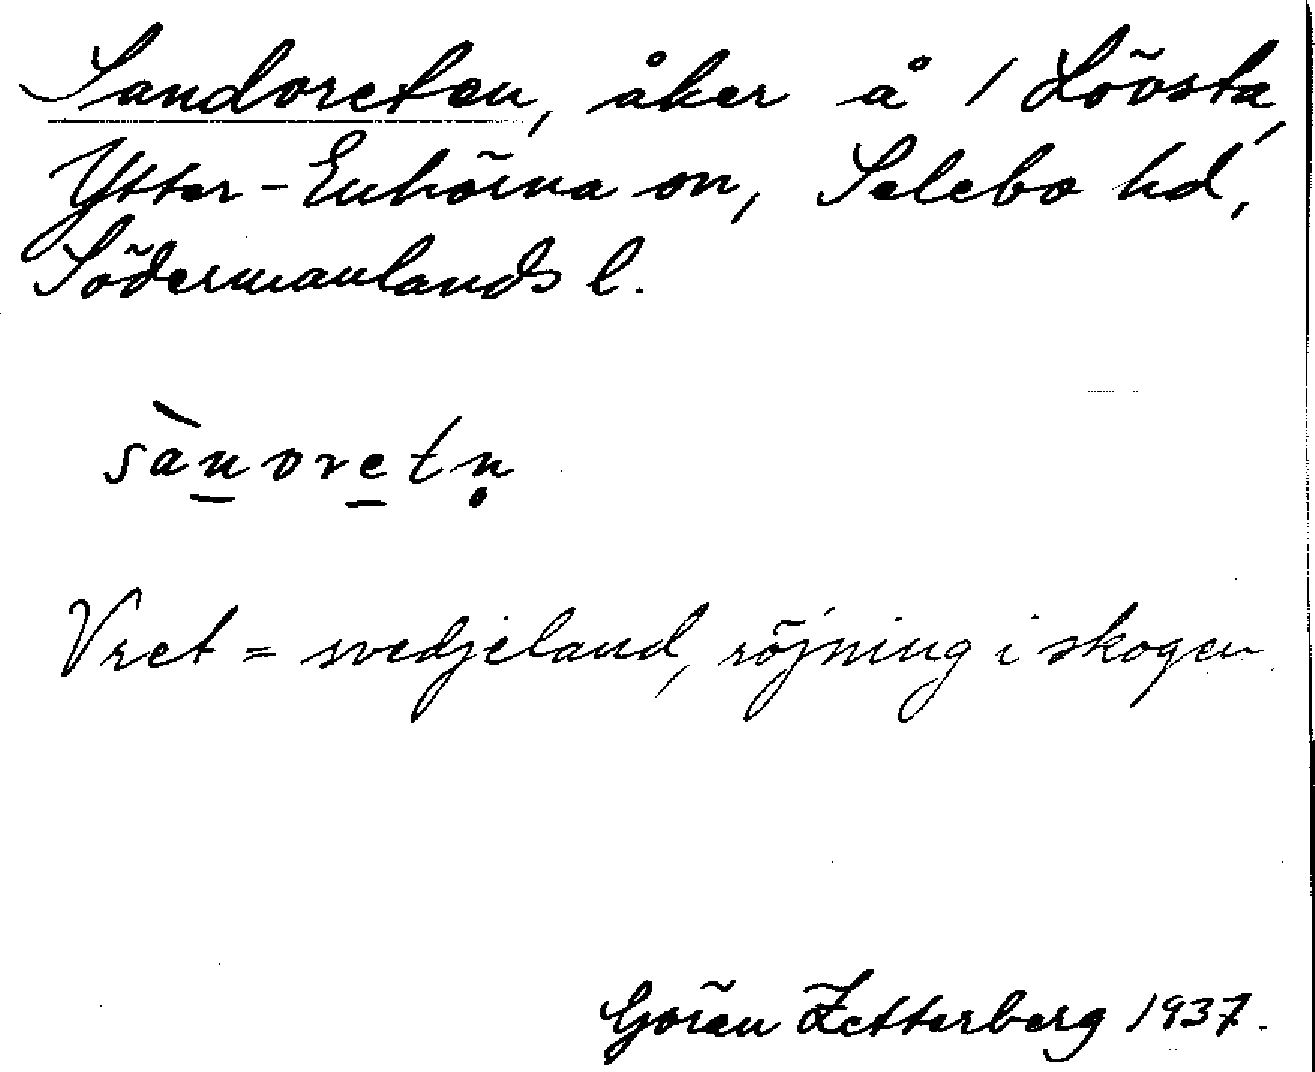 Sandvreten, åker å 1 Lövsta,
Ytter-Enhörna sn, Selebo hd,
Södermanlands l.
sànvretṇ
Vret = svedjeland, röjning i skogen.
Gören Zetterberg 1937.